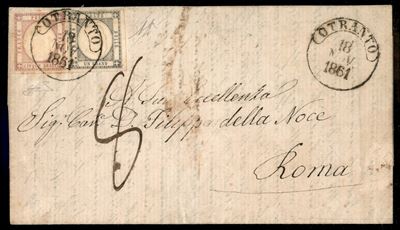 COTRANTO
18
NOV
1861
COTRANTO
18
NOV
1861
8
A Sua Eccellenza
Sig. Cav. D. Filippo della Noce
Roma